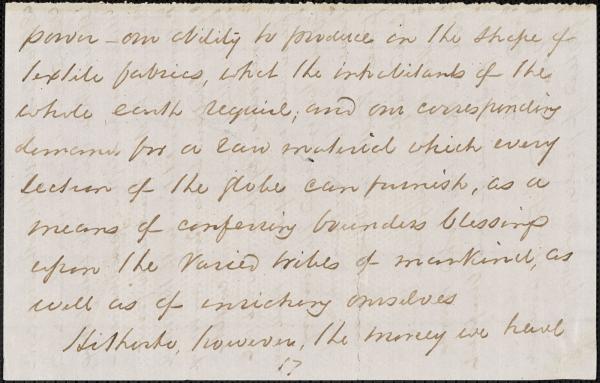 power – our ability to produce in the shape of
textile fabrics, what the inhabitants of the
whole earth require, and our corresponding
demand for a raw material which every
section of the globe can furnish, as a
means of conferring boundless blessings
upon the varied tribes of mankind, as
well as of enriching ourselves
Hitherto, however, the money we have
17